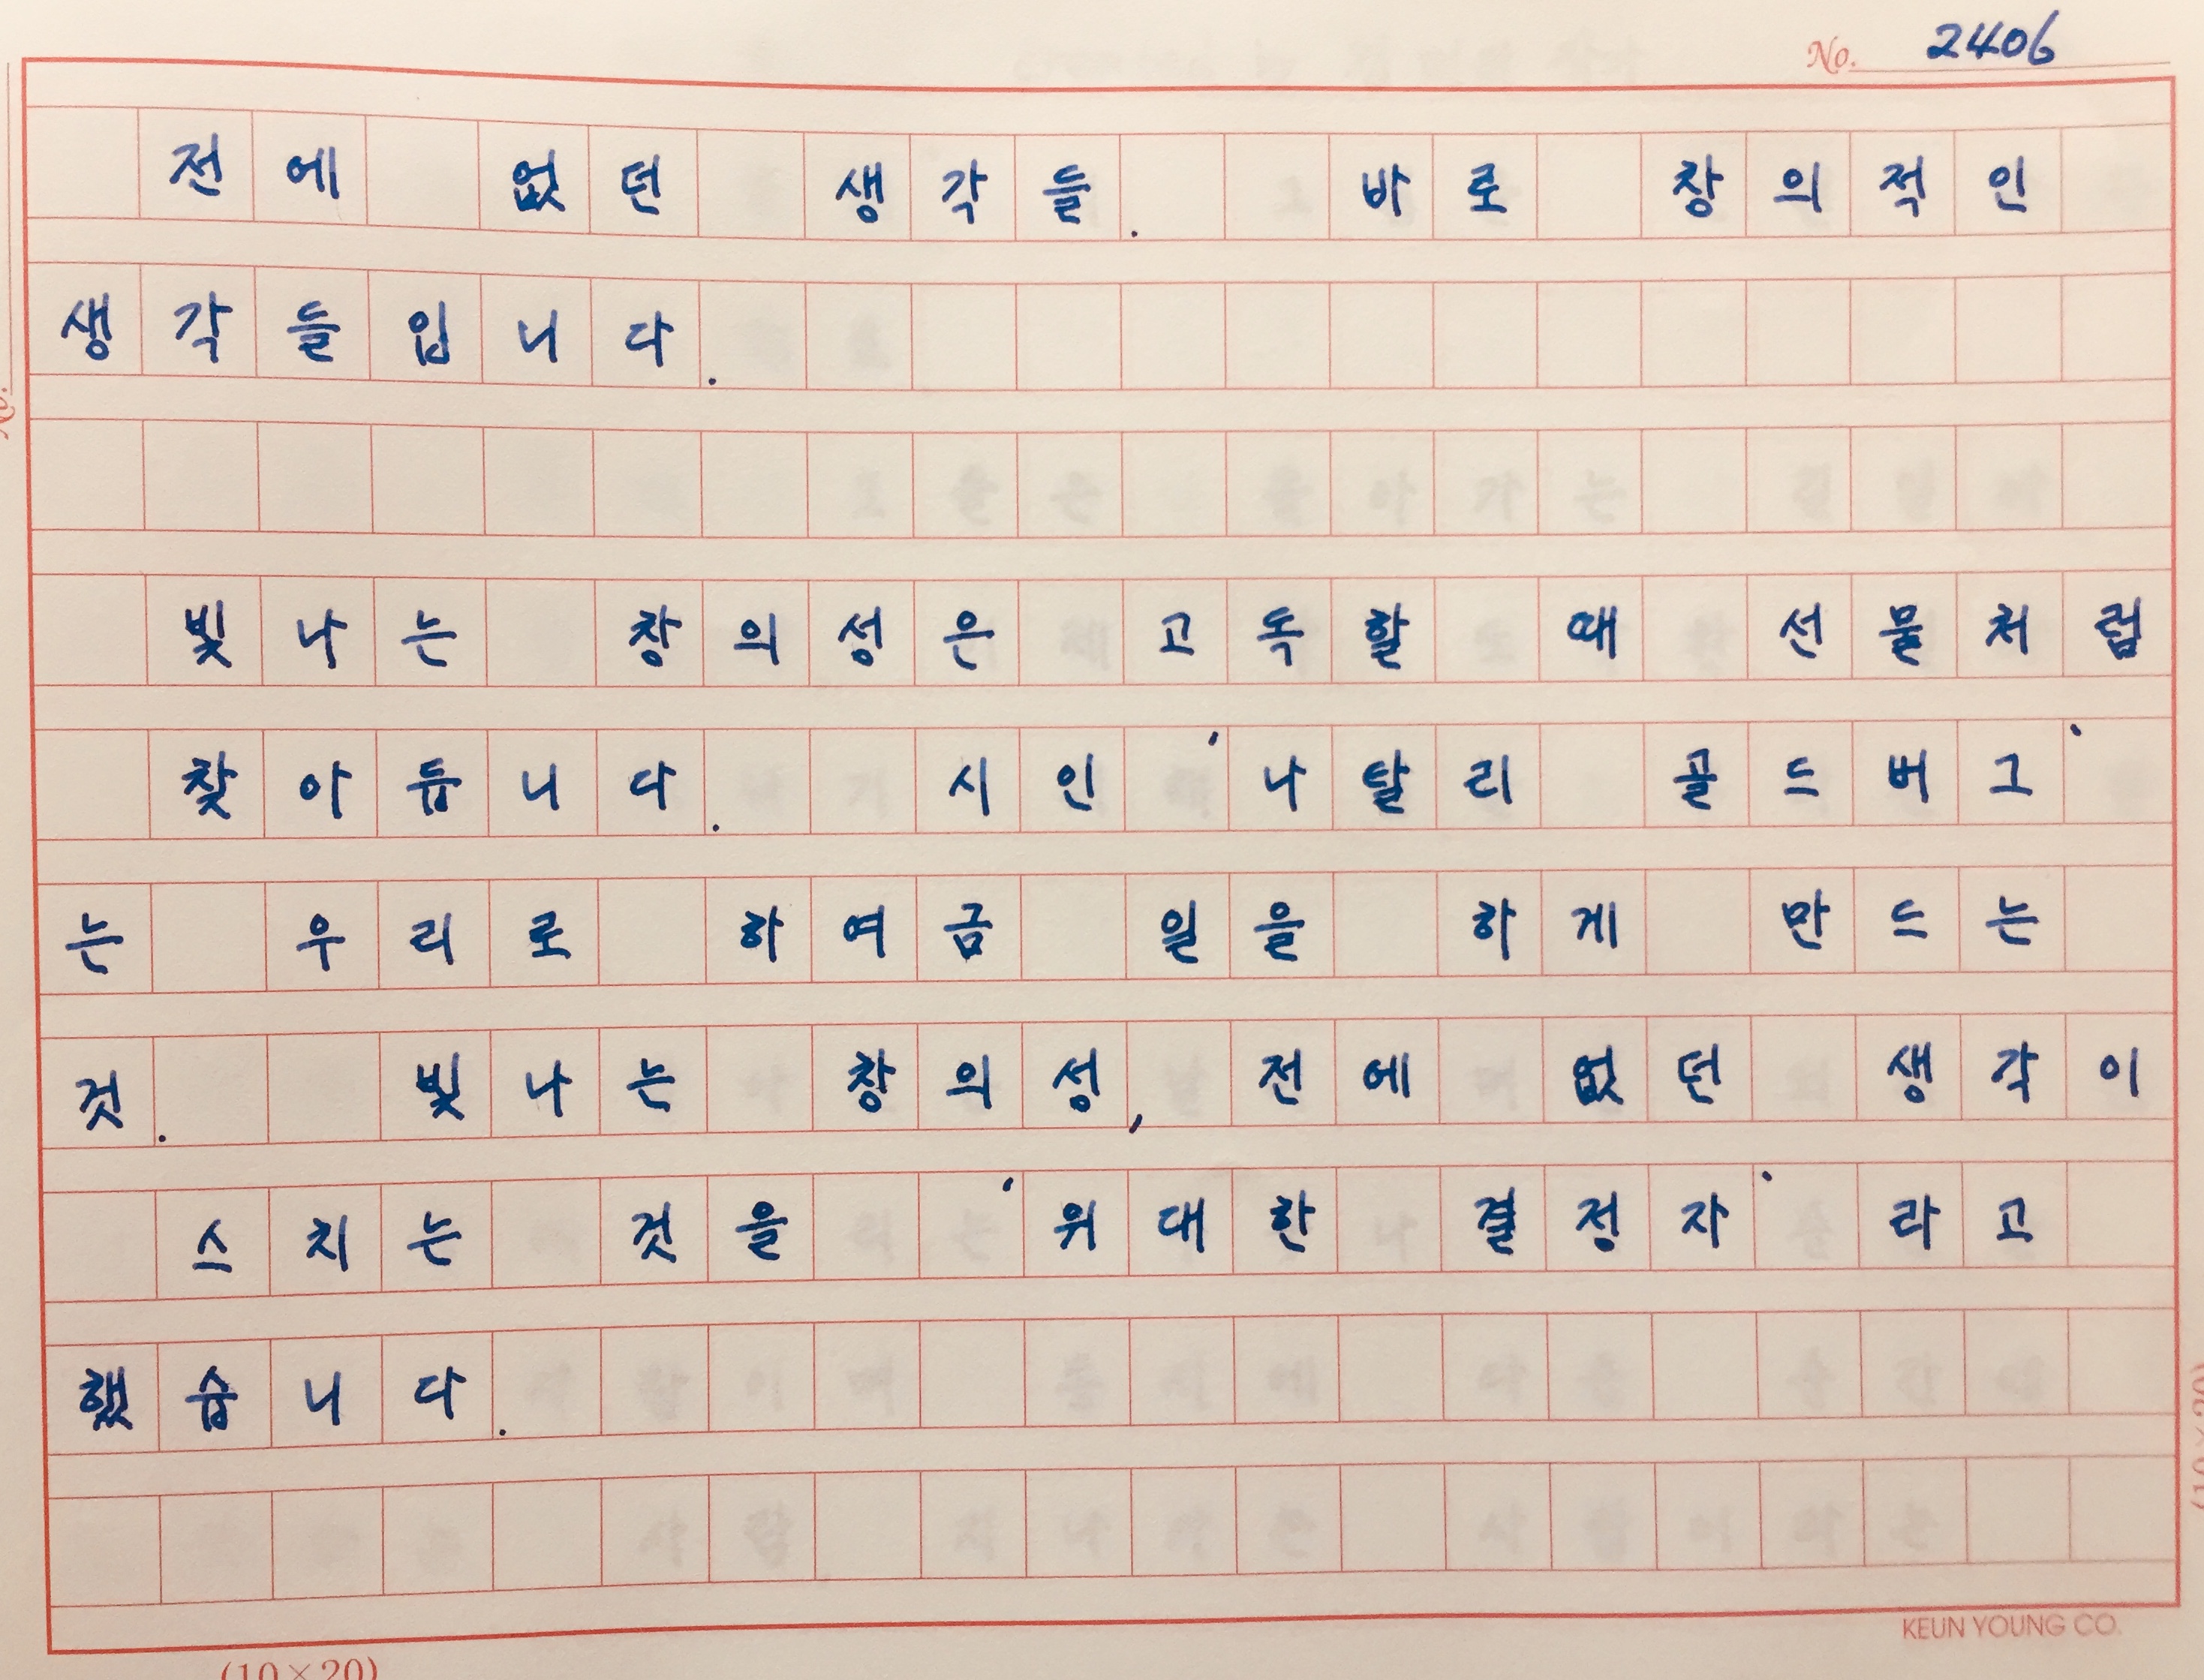 No. 2406
전에 없던 생각들. 바로 창의적인
생각들입니다.
빛나는 창의성은 고독할 때 선물처럼
찾아듭니다. 시인 '나탈리 골드버그'
는 우리로 하여금 일을 하게 만드는
것. 빛나는 창의성, 전에 없던 생각이
스치는 것을 '위대한 결정자' 라고
했습니다.
KEUN YOUNG CO.
(10×20)